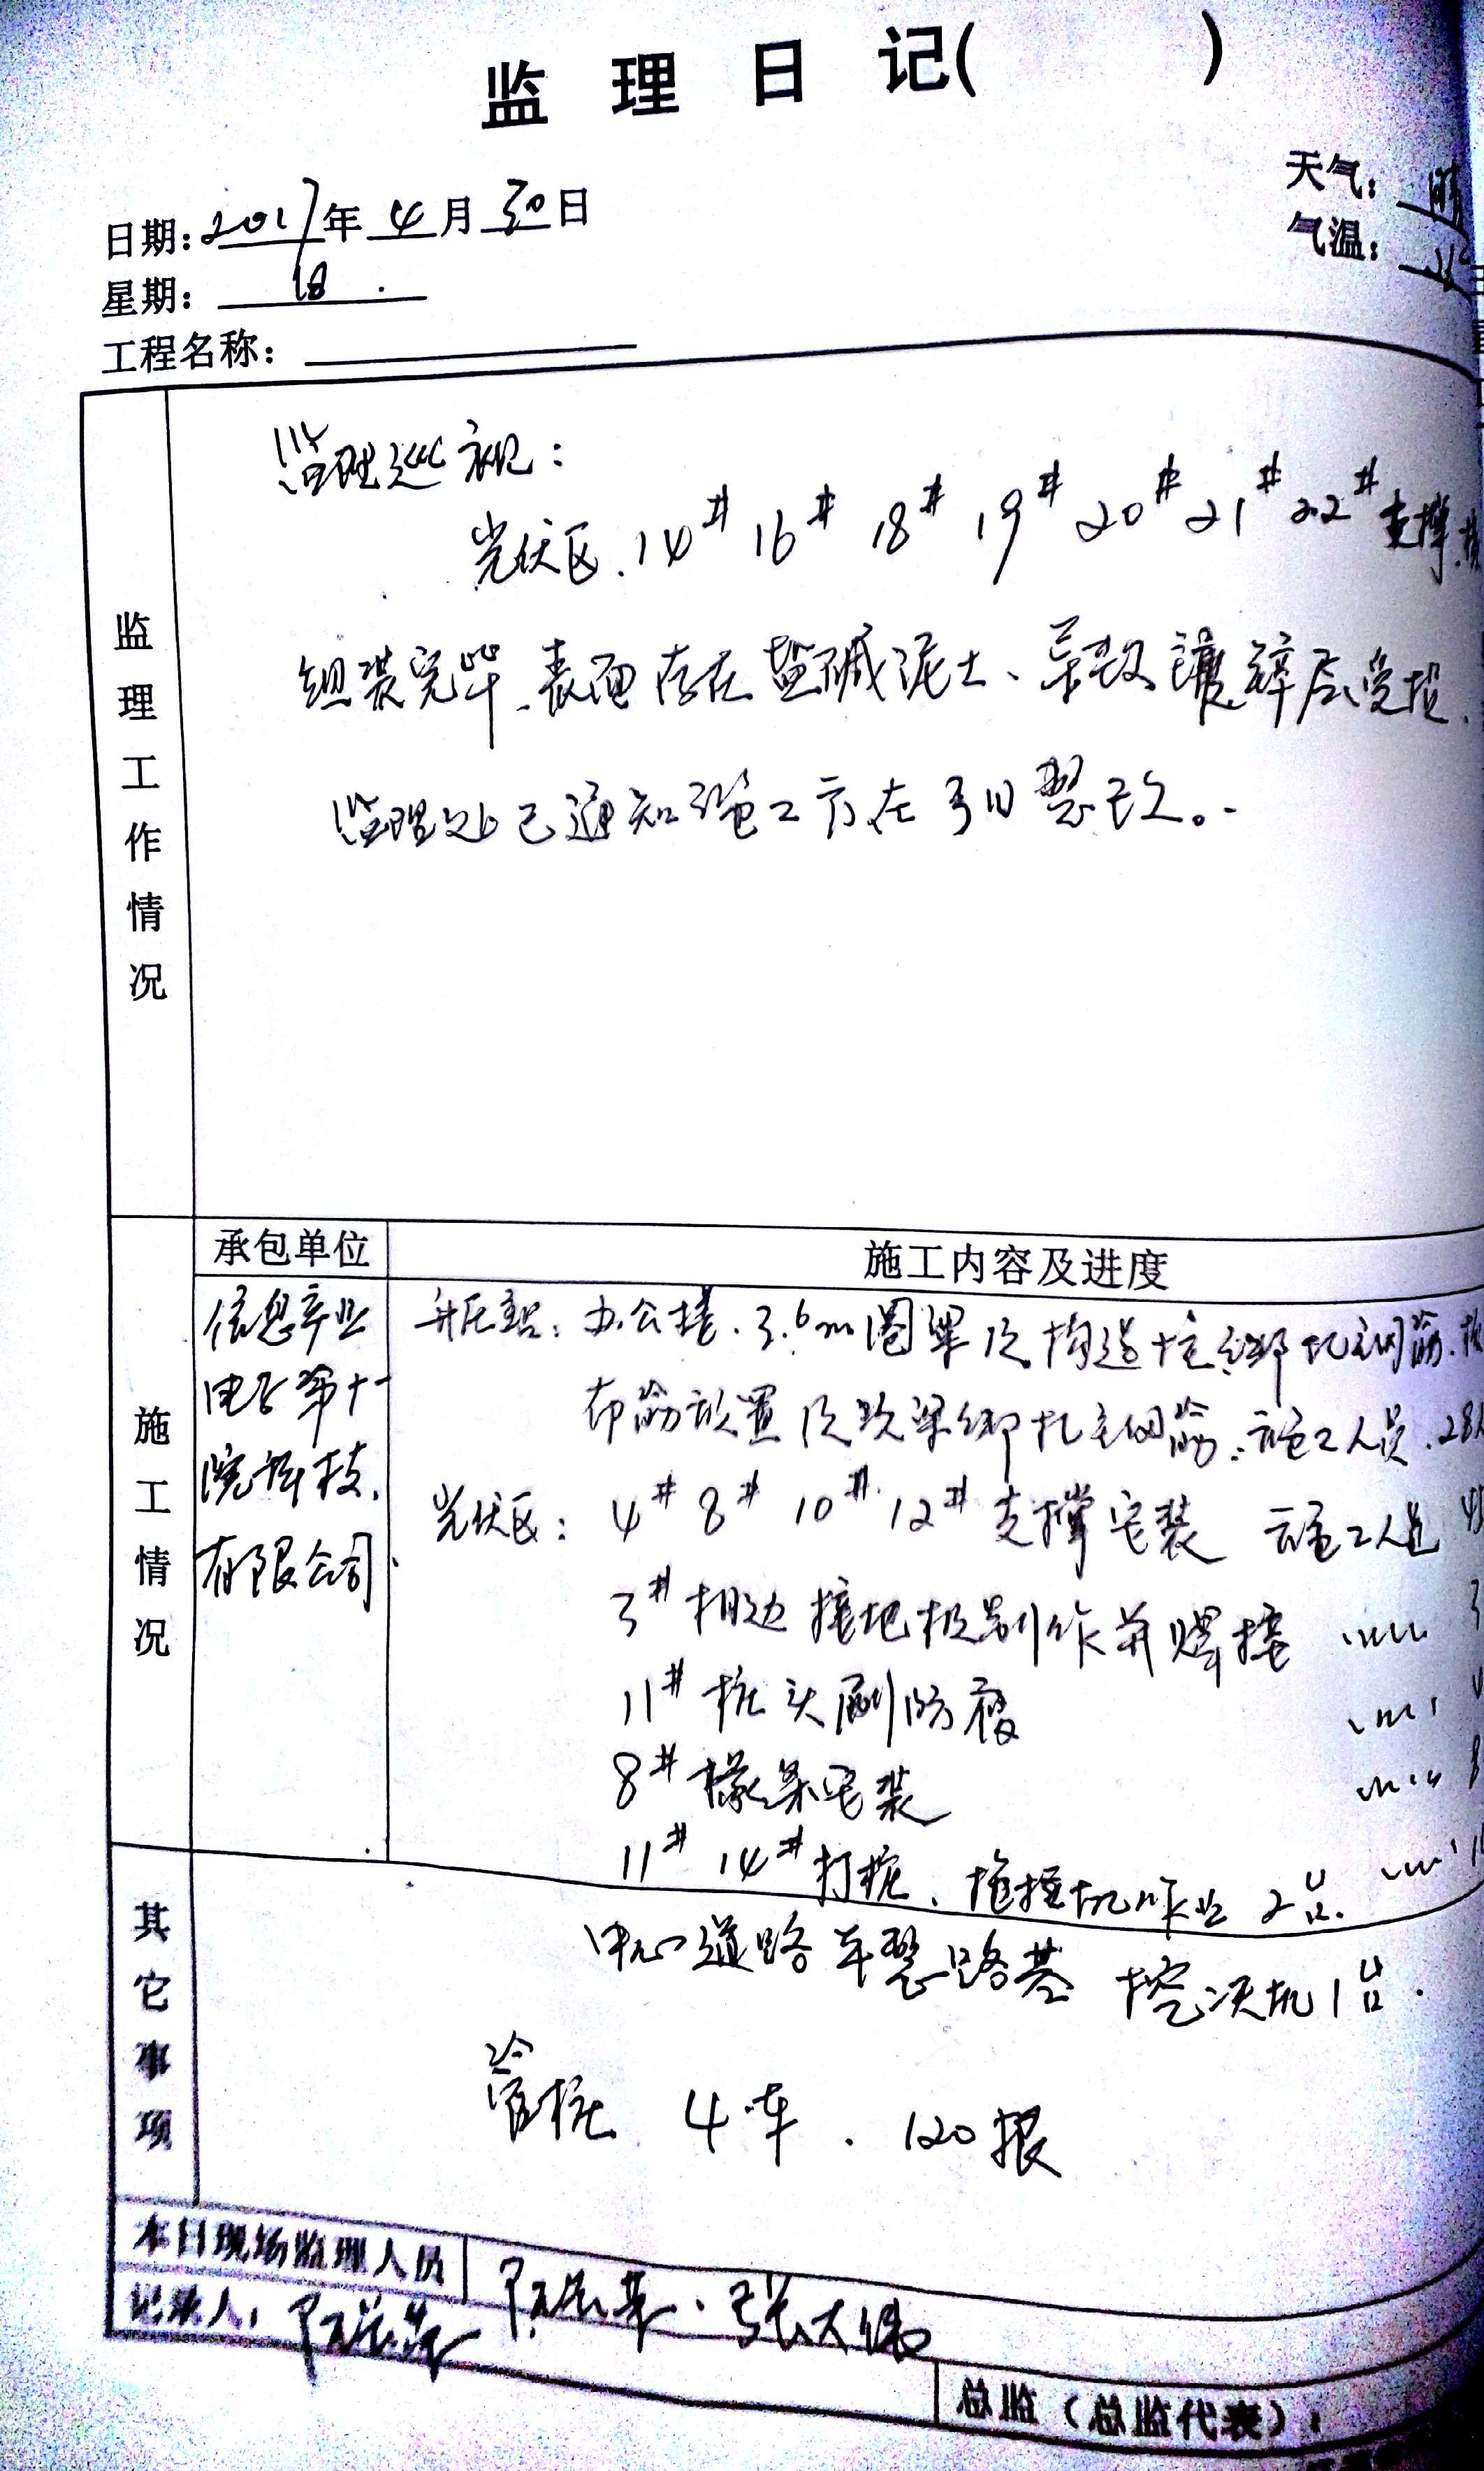 监理日记( )
天气：晴
日期：2017年4月30日
气温：
星期：日
工程名称：
监理工作情况
监理巡视：
光伏区.14# 16# 18# 19# 20# 21# 22#支撑.
组装完毕.表面存在盐碱泥土、导致镀锌层受损.
监理处已通知施工方在3日整改。
施工情况
承包单位
施工内容及进度
信息产业
电子第十一
院科技.
有限公司
升压站：办公楼.3.6m圈梁及构造柱绑扎钢筋.
布筋放置及次梁绑扎钢筋.施工人员.28
光伏区：4# 8# 10# 12#支撑安装 施工人员
3#相边接地极制作并焊接
11#桩头刷防腐
8#檩条安装
11# 14#打桩、作业2台.
其它事项
中心道路平整路基 挖机1台.
管桩 4车. 120根
本日现场监理人员
张大伟
记录人：
总监（总监代表）：